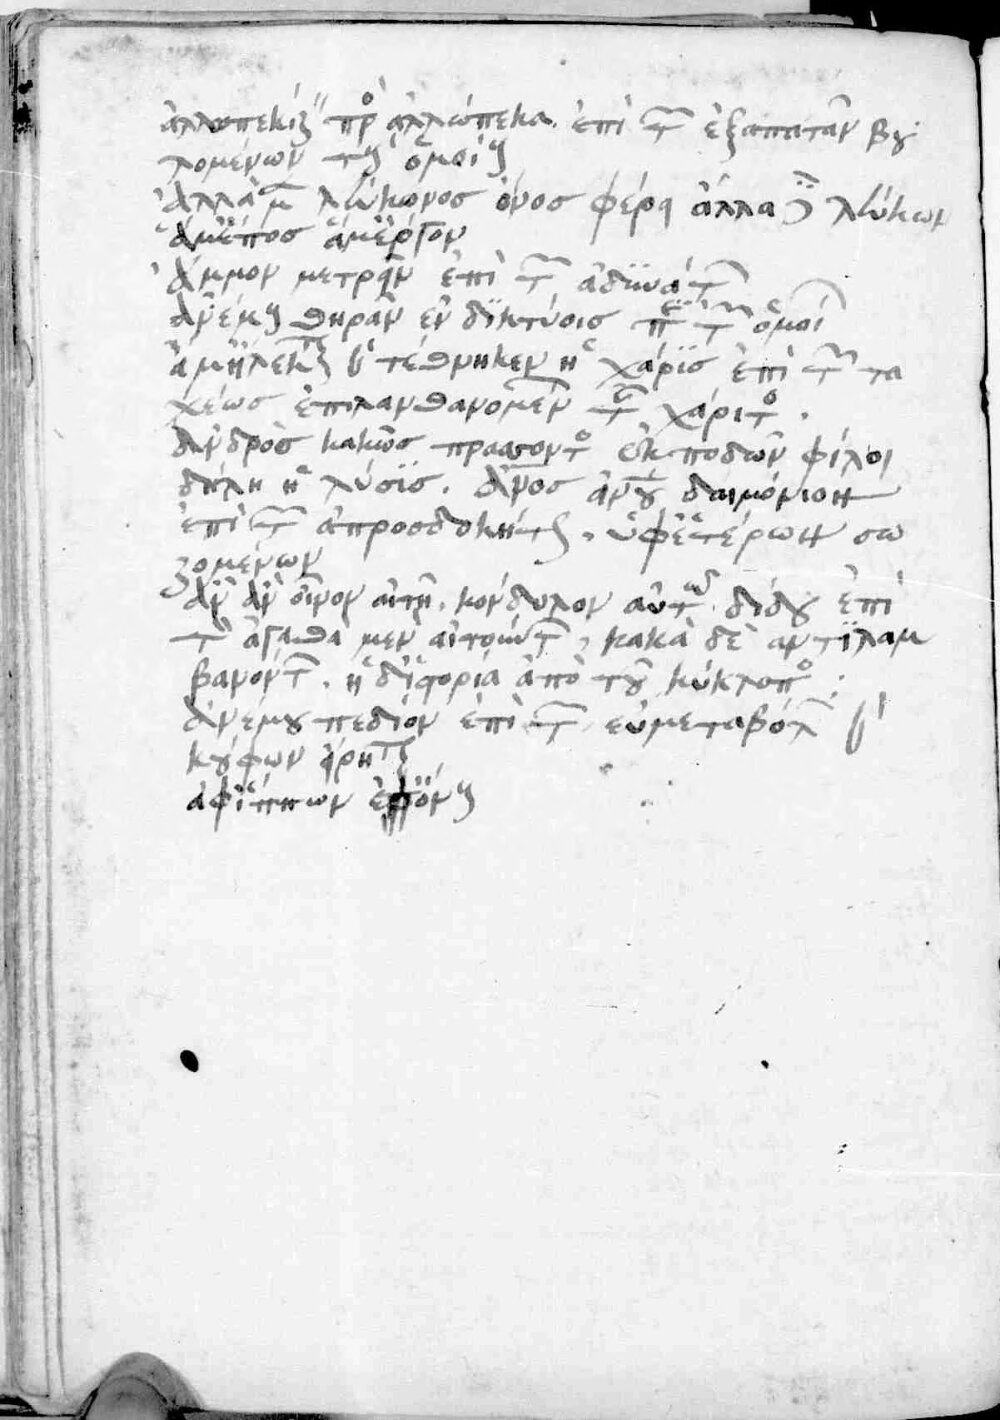 ἀλλωπεκίζειν πρὸς ἀλλώπεκα. ἐπὶ τῶν ἐξαπατᾶν βου
λομένων τοὺς ὁμοίους
ἄλλα μὲν λεύκωνος ὄνος φέρει ἄλλα δὲ λεύκων
ἅμ' ἔπος ἅμ' ἔργον
ἄμμον μετρεῖν ἐπὶ τῶν ἀδυνάτων
ἀνέμους θηρᾶν ἐν δικτύοις ἐπὶ τῶν ὁμοίων
ἅμ' ἠλέηται καὶ τέθνηκεν ἡ χάρις ἐπὶ τῶν τα
χέως ἐπιλανθανομένων τῆς χάριτος.
ἀνδρὸς κακῶς πράσσοντος ἐκποδὼν φίλοι
δήλη ἡ λύσις. δαιμόνιον
ἐπὶ τῶν ἀπροσδοκήτως, ὑφ' ἑτέρων σω
ζομένων
ἂν οἶνον αἰτῇ, κόνδυλον αὐτῷ δίδου ἐπὶ
τῶν ἀγαθὰ μὲν αἰτούντων, κακὰ δὲ ἀντιλαμ
βανόντων. ἡ δὲ ἱστορία ἀπὸ τοῦ κύκλωπος:
ἀνέμου πεδίον ἐπὶ τῶν εὐμεταβόλων καὶ
κούφων
ἀφ' ἵππων ἐπ' ὄνους